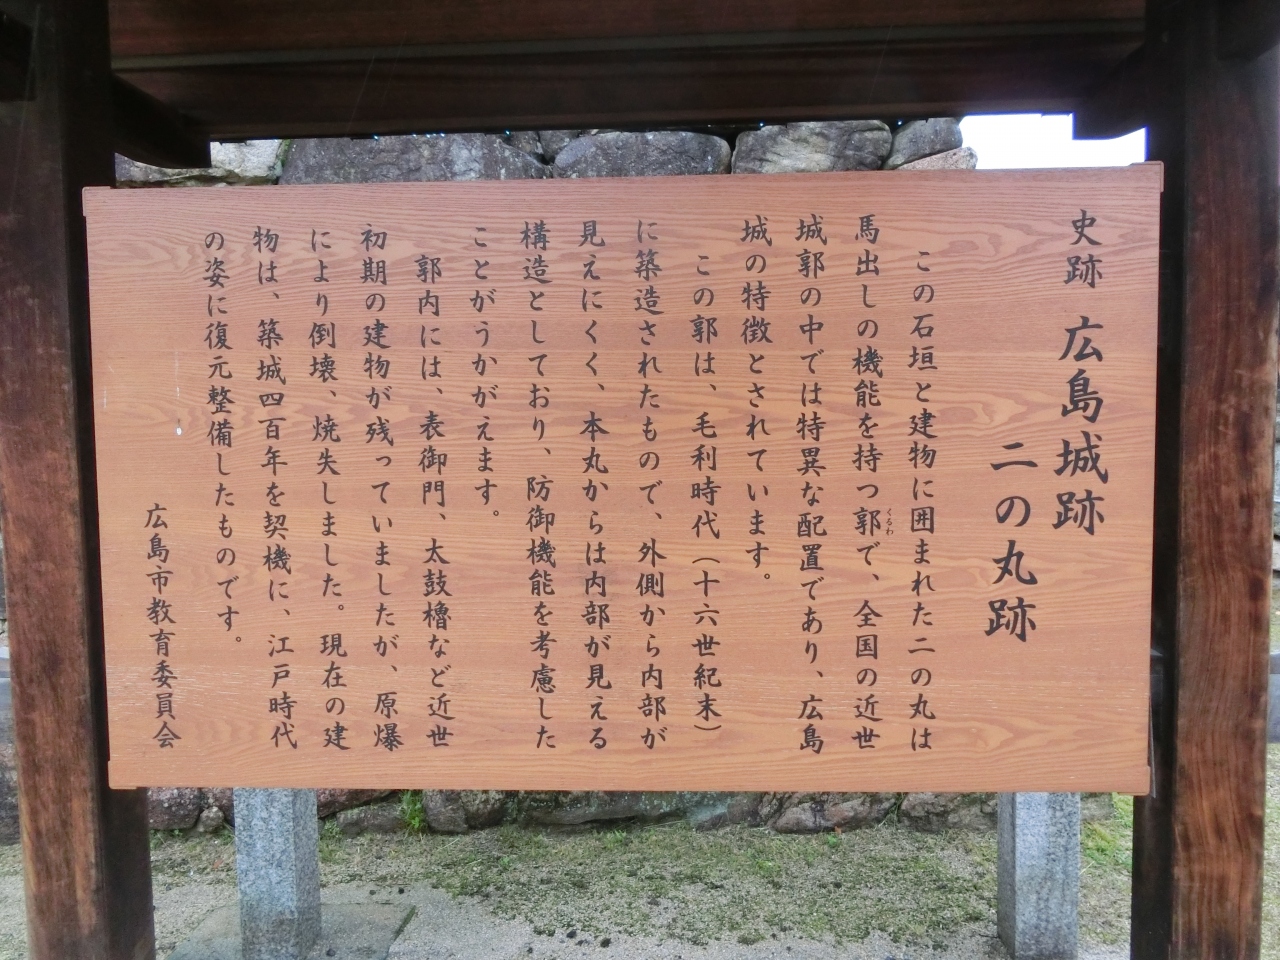 史跡 広島城跡
二の丸跡
この石垣と建物に囲まれた二の丸は
馬出しの機能を持つ郭で、全国の近世
くるわ
城郭の中では特異な配置であり、広島
城の特徴とされています。
この郭は、毛利時代(十六世紀末)
に築造されたもので、外側から内部が
見えにくく、本丸からは内部が見える
構造としており、防御機能を考慮した
ことがうかがえます。
郭内には、表御門、太鼓櫓など近世
初期の建物が残っていましたが、原爆
により倒壊、焼失しました。現在の建
物は、築城四百年を契機に、江戸時代
の姿に復元整備したものです。
広島市教育委員会